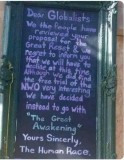 Dear Globalists
We the people have
reviewed your
proposal for the
Great Reset &
regret to inform you
that we will have to
decline at this time.
Although we did find
the free trial of the
NWO very interesting
We have decided
instead to go with
"The Great
Awakening"
Yours Sincerely,
The Human Race.